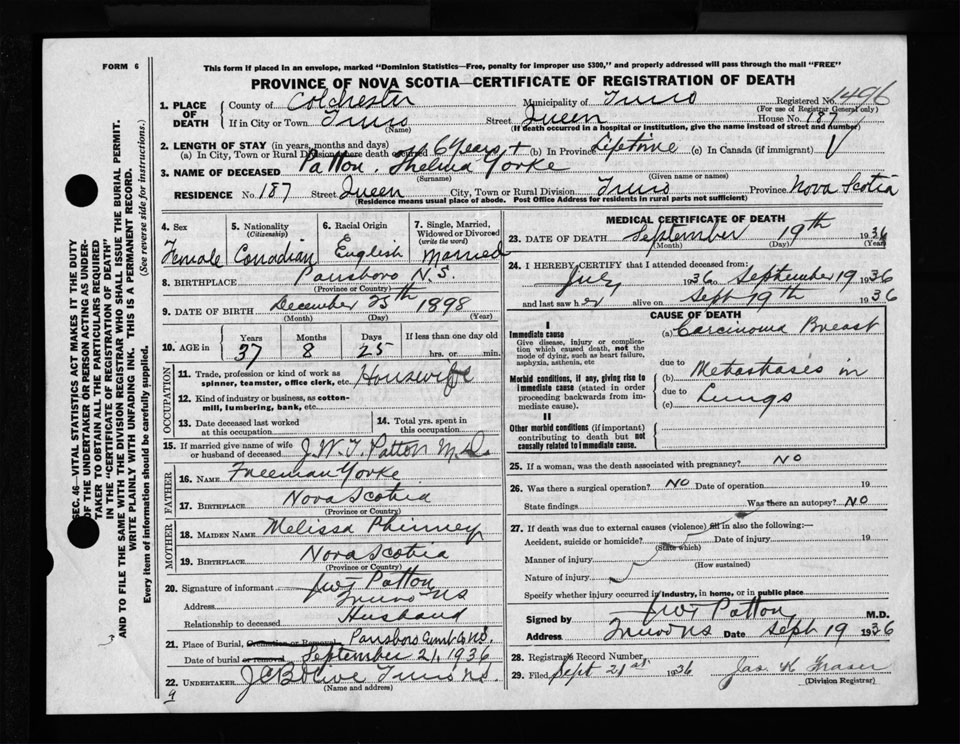 FORM 6
This form if placed in an envelope, marked "Dominion Statistics—Free, penalty for improper use $300," and properly addressed will pass through the mail "FREE"
PROVINCE OF NOVA SCOTIA—CERTIFICATE OF REGISTRATION OF DEATH
1. PLACE OF DEATH County of Colchester Municipality of Truro Registered No. 1496
(For use of Registrar General only)
If in City or Town Truro Street Queen House No. 187
(Name) (If death occurred in a hospital or institution, give the name instead of street and number)
2. LENGTH OF STAY (in years, months and days)
(a) In City, Town or Rural Division where death occurred 6 Years + (b) In Province Lifetime (c) In Canada (if immigrant)
3. NAME OF DECEASED Patton, Thelma Yorke
(Surname) (Given name or names)
RESIDENCE No. 187 Street Queen City, Town or Rural Division Truro Province Nova Scotia
(Residence means usual place of abode. Post Office Address for residents in rural parts not sufficient)
4. Sex Female
5. Nationality (Citizenship) Canadian
6. Racial Origin English
7. Single, Married, Widowed or Divorced (write the word) Married
8. BIRTHPLACE Parrsboro N.S.
(Province or Country)
9. DATE OF BIRTH December 25th 1898
(Month) (Day) (Year)
10. AGE in Years Months Days If less than one day old
37 8 25 hrs. or min.
OCCUPATION
11. Trade, profession or kind of work as spinner, teamster, office clerk, etc. Housewife
12. Kind of industry or business, as cotton-mill, lumbering, bank, etc.
13. Date deceased last worked at this occupation
14. Total yrs. spent in this occupation
15. If married give name of wife or husband of deceased J.W.T. Patton M.D.
FATHER
16. Name Freeman Yorke
17. BIRTHPLACE Nova Scotia
(Province or Country)
MOTHER
18. MAIDEN NAME Melissa Phinney
19. BIRTHPLACE Nova Scotia
(Province or Country)
20. Signature of informant JWT Patton
Address Truro NS
Relationship to deceased Husband
21. Place of Burial, Cremation or Removal Parrsboro Cumb. Co NS.
Date of burial or removal September 21, 1936
22. UNDERTAKER Truro NS.
(Name and address)
MEDICAL CERTIFICATE OF DEATH
23. DATE OF DEATH September 19th 1936
(Month) (Day) (Year)
24. I HEREBY CERTIFY that I attended deceased from:
July 1936 to September 19 1936
and last saw her alive on Sept 19th 1936
CAUSE OF DEATH
I
Immediate cause
Give disease, injury or complication which caused death, not the mode of dying, such as heart failure, asphyxia, asthenia, etc
(a) Carcinoma Breast
due to
Morbid conditions, if any, giving rise to immediate cause (stated in order proceeding backwards from immediate cause).
(b) Metastasis in
due to
(c) Lungs
II
Other morbid conditions (if important) contributing to death but not causally related to immediate cause.
25. If a woman, was the death associated with pregnancy? NO
26. Was there a surgical operation? NO Date of operation 19
State findings Was there an autopsy? NO
27. If death was due to external causes (violence) fill in also the following:—
Accident, suicide or homicide? Date of injury 19
(State which)
Manner of injury
(How sustained)
Nature of injury
Specify whether injury occurred in industry, in home, or in public place
Signed by JWT Patton, M.D.
Address Truro NS Date Sept 19 1936
28. Registrar's Record Number
29. Filed Sept 21st 1936 Jas. H Fraser
(Division Registrar)
SEC. 46—VITAL STATISTICS ACT MAKES IT THE DUTY
OF THE UNDERTAKER OR PERSON ACTING AS UNDER-
TAKER TO OBTAIN ALL THE PARTICULARS REQUIRED
IN THE "CERTIFICATE OF REGISTRATION OF DEATH"
AND TO FILE THE SAME WITH THE DIVISION REGISTRAR WHO SHALL ISSUE THE BURIAL PERMIT.
WRITE PLAINLY WITH UNFADING INK. THIS IS A PERMANENT RECORD.
Every item of information should be carefully supplied. (See reverse side for instructions.)